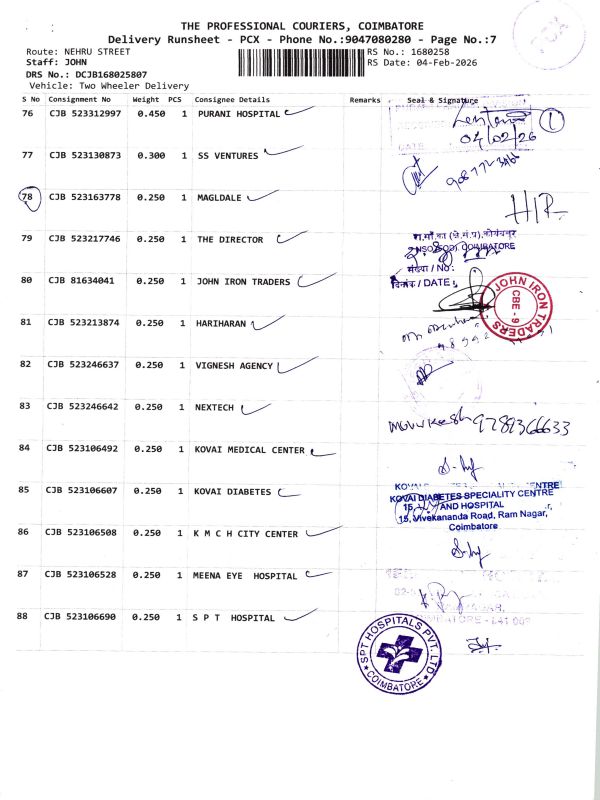 THE PROFESSIONAL COURIERS, COIMBATORE
Delivery Runsheet - PCX - Phone No.:9047080280 - Page No.:7
Route: NEHRU STREET
RS No.: 1680258
Staff: JOHN
RS Date: 04-Feb-2026
DRS No.: DCJB168025807
Vehicle: Two Wheeler Delivery
S No Consignment No Weight PCS Consignee Details Remarks Seal & Signature
76 CJB 523312997 0.450 1 PURANI HOSPITAL
04/02/26
1
77 CJB 523130873 0.300 1 SS VENTURES
78 CJB 523163778 0.250 1 MAGLDALE
79 CJB 523217746 0.250 1 THE DIRECTOR
COIMBATORE
संख्या / No:
दिनांक / DATE:
80 CJB 81634041 0.250 1 JOHN IRON TRADERS
JOHN IRON TRADERS
CBE - 9
81 CJB 523213874 0.250 1 HARIHARAN
82 CJB 523246637 0.250 1 VIGNESH AGENCY
83 CJB 523246642 0.250 1 NEXTECH
9789366633
84 CJB 523106492 0.250 1 KOVAI MEDICAL CENTER
85 CJB 523106607 0.250 1 KOVAI DIABETES
KOVAI DIABETES SPECIALITY CENTRE
AND HOSPITAL
15, Vivekananda Road, Ram Nagar,
Coimbatore
86 CJB 523106508 0.250 1 K M C H CITY CENTER
87 CJB 523106528 0.250 1 MEENA EYE HOSPITAL
88 CJB 523106690 0.250 1 S P T HOSPITAL
SPT HOSPITALS PVT. LTD
COIMBATORE